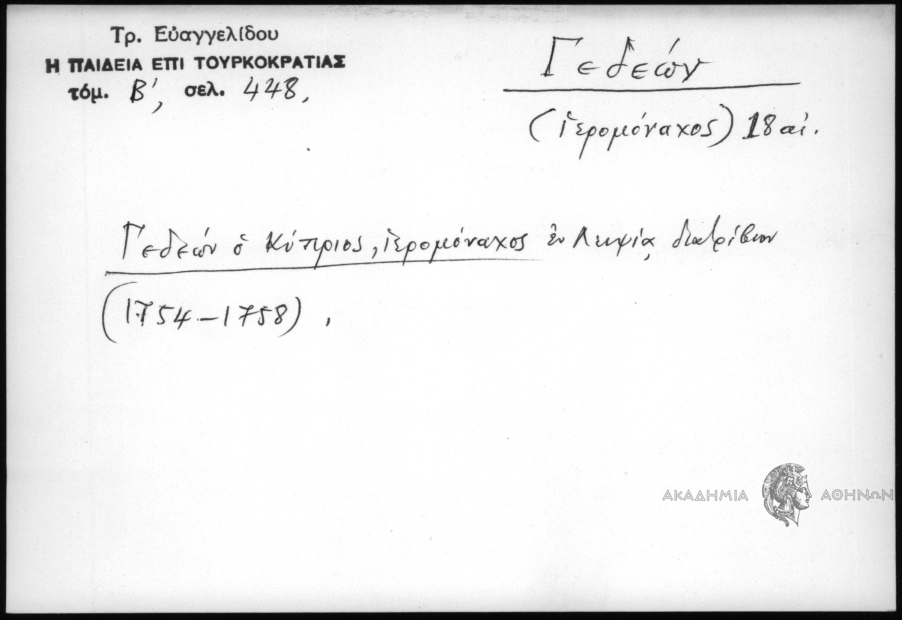 Τρ. Εὐαγγελίδου
Η ΠΑΙΔΕΙΑ ΕΠΙ ΤΟΥΡΚΟΚΡΑΤΙΑΣ
τόμ. Β', σελ. 448,
Γεδεών
(ἱερομόναχος) 18 αἰ.
Γεδεών ὁ Κύπριος, ἱερομόναχος ἐν Λειψίᾳ διατρίβων
(1754-1758).
ΑΚΑΔΗΜΙΑ ΑΘΗΝΩΝ